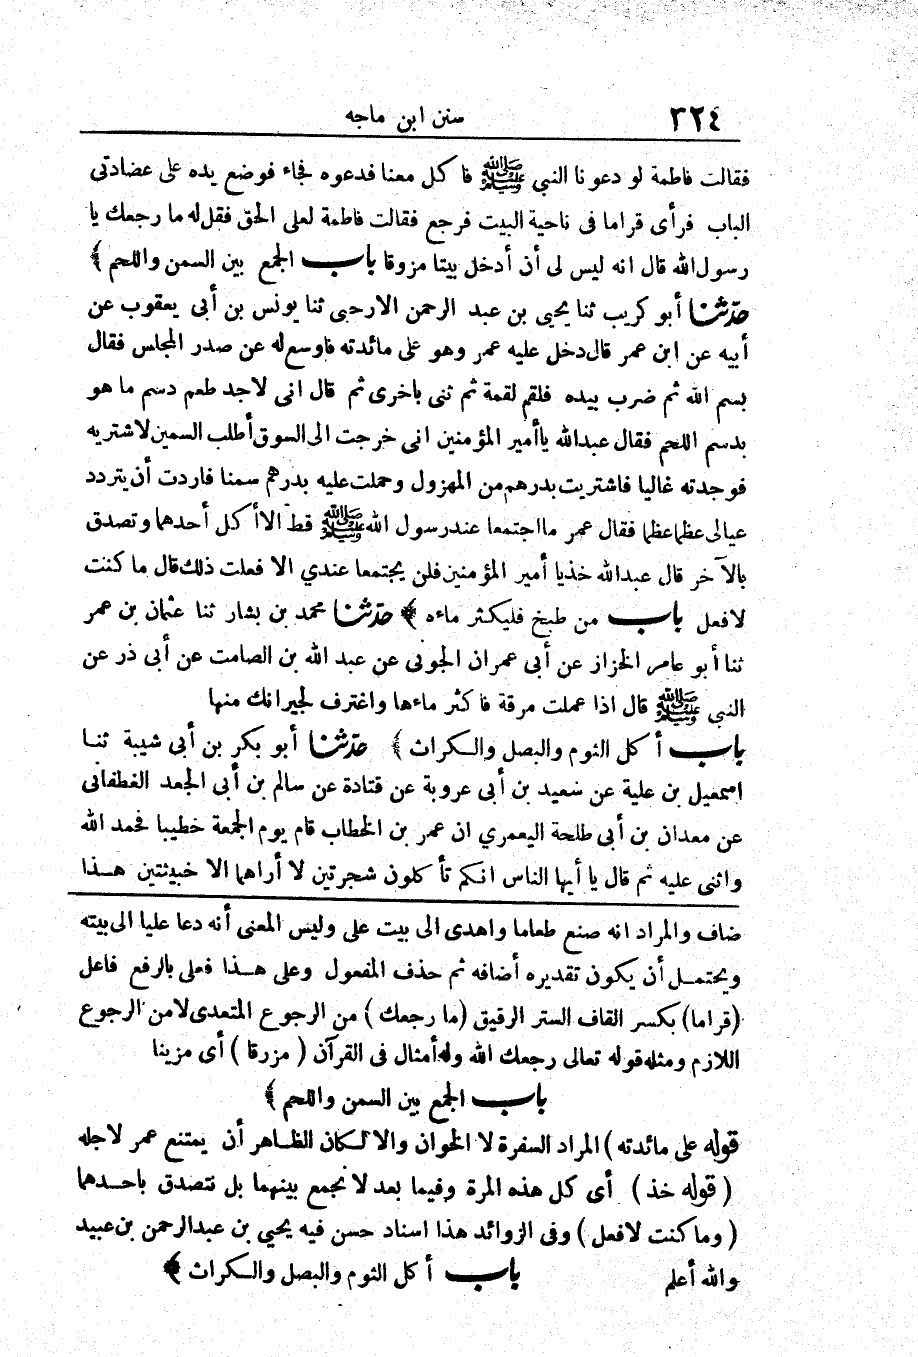 ٣٢٤
سنن ابن ماجه
فقالت فاطمة لو دعونا النبي ﷺ فاكل معنا فدعوه فجاء فوضع يده على عضادتى
الباب فرأى قراما فى ناحية البيت فرجع فقالت فاطمة لعلى الحق فقل له ما رجعك يا
رسول الله قال انه ليس لى أن أدخل بيتا مزوقا باب الجمع بين السمن واللحم ﴾
حدثنا أبو كريب ثنا يحيى بن عبد الرحمن الارحبى ثنا يونس بن أبى يعقوب عن
أبيه عن ابن عمر قال دخل عليه عمر وهو على مائدته فاوسع له عن صدر المجلس فقال
بسم الله ثم ضرب بيده فلقم لقمة ثم ثنى باخرى ثم قال انى لاجد طعم دسم ما هو
بدسم اللحم فقال عبدالله يا أمير المؤمنين انى خرجت الى السوق أطلب السمين لاشتريه
فوجدته غاليا فاشتريت بدرهم من المهزول وحملت عليه بدرهم سمنا فاردت أن يتردد
عيالى عظما عظما فقال عمر ما اجتمعا عند رسول الله ﷺ قط الا أكل أحدهما وتصدق
بالآخر قال عبدالله خذيا أمير المؤمنين فلن يجتمعا عندي الا فعلت ذلك قال ما كنت
لافعل باب من طبخ فليكثر ماءه ﴾ حدثنا محمد بن بشار ثنا عثمان بن عمر
ثنا أبو عامر الخزاز عن أبى عمران الجونى عن عبد الله بن الصامت عن أبى ذر عن
النبي ﷺ قال اذا عملت مرقة فاكثر ماءها واغترف لجيرانك منها
باب أكل الثوم والبصل والكراث ﴾ حدثنا أبو بكر بن أبى شيبة ثنا
اسمعيل بن علية عن سعيد بن أبى عروبة عن قتادة عن سالم بن أبى الجعد الغطفانى
عن معدان بن أبى طلحة اليعمري ان عمر بن الخطاب قام يوم الجمعة خطيبا فحمد الله
واثنى عليه ثم قال يا أيها الناس انكم تأكلون شجرتين لا أراهما الا خبيثتين هذا
ضاف والمراد انه صنع طعاما واهدى الى بيت على وليس المعنى أنه دعا عليا الى بيته
ويحتمل أن يكون تقديره أضافه ثم حذف المفعول وعلى هذا فعلى بالرفع فاعل
(قراما) بكسر القاف الستر الرقيق (ما رجعك) من الرجوع المتعدى لا من الرجوع
اللازم ومثله قوله تعالى رجعك الله وله أمثال فى القرآن (مزرقا) أى مزينا
باب الجمع بين السمن واللحم ﴾
قوله على مائدته) المراد السفرة لا الخوان والا لكان الظاهر أن يمتنع عمر لاجله
(قوله خذ) أى كل هذه المرة وفيما بعد لا نجمع بينهما بل نتصدق باحدهما
(وما كنت لافعل) وفى الزوائد هذا اسناد حسن فيه يحيي بن عبدالرحمن بن عبيد
والله أعلم باب أكل الثوم والبصل والكراث ﴾